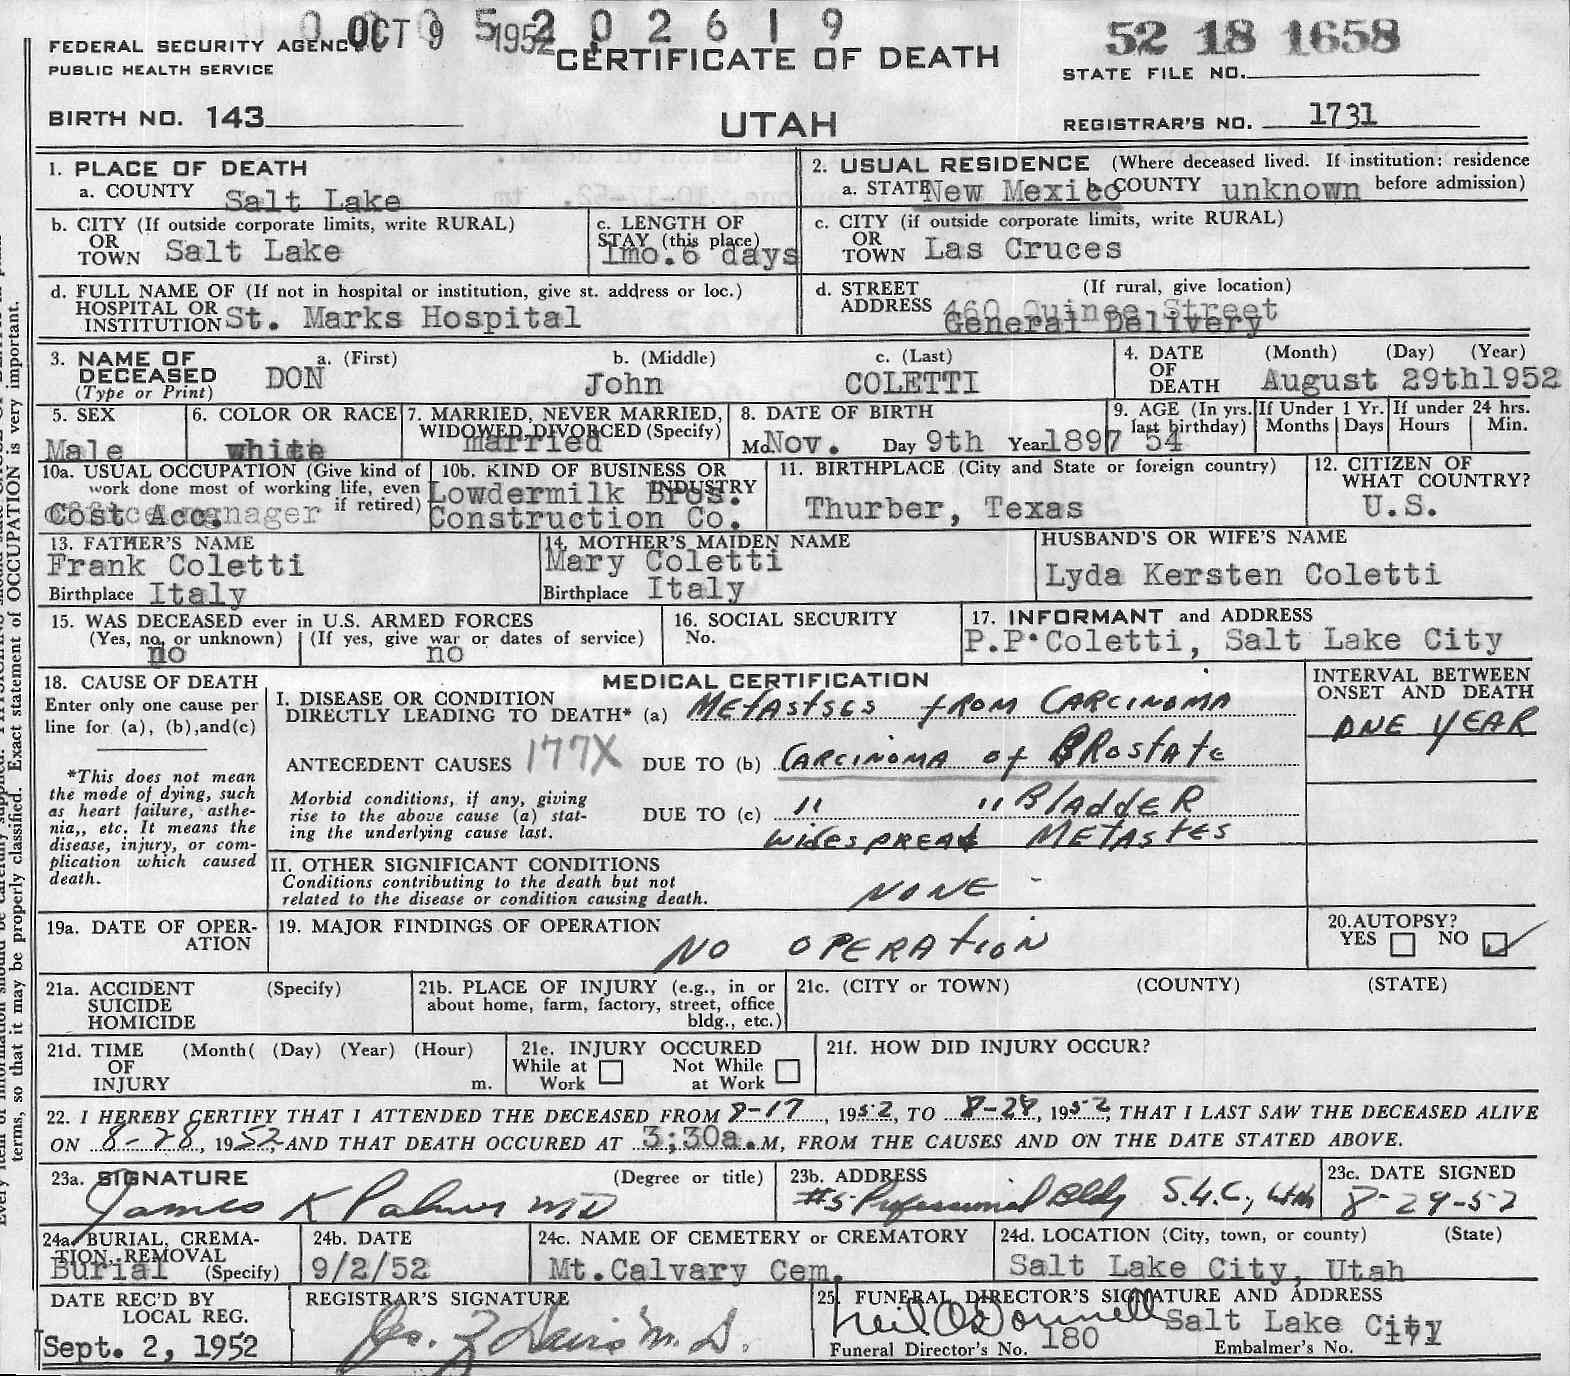 OCT 9 1952
202619
52 18 1658
FEDERAL SECURITY AGENCY
PUBLIC HEALTH SERVICE
CERTIFICATE OF DEATH
STATE FILE NO.
BIRTH NO. 143
UTAH
REGISTRAR'S NO. 1731
1. PLACE OF DEATH
a. COUNTY Salt Lake
2. USUAL RESIDENCE (Where deceased lived. If institution: residence before admission)
a. STATE New Mexico b. COUNTY unknown
b. CITY (If outside corporate limits, write RURAL)
OR TOWN Salt Lake
c. LENGTH OF STAY (this place)
1mo.6 days
c. CITY (if outside corporate limits, write RURAL)
OR TOWN Las Cruces
d. FULL NAME OF (If not in hospital or institution, give st. address or loc.)
HOSPITAL OR INSTITUTION St. Marks Hospital
d. STREET ADDRESS (If rural, give location)
460 Street
General Delivery
3. NAME OF DECEASED (Type or Print)
a. (First) DON
b. (Middle) John
c. (Last) COLETTI
4. DATE OF DEATH (Month) (Day) (Year)
August 29th1952
5. SEX
Male
6. COLOR OR RACE
white
7. MARRIED, NEVER MARRIED, WIDOWED, DIVORCED (Specify)
married
8. DATE OF BIRTH
Mo. Nov. Day 9th Year 1897
9. AGE (In yrs. last birthday) 54
If Under 1 Yr. Months Days
If under 24 hrs. Hours Min.
10a. USUAL OCCUPATION (Give kind of work done most of working life, even if retired)
Cost Acc. manager
10b. KIND OF BUSINESS OR INDUSTRY
Lowdermilk Bros.
Construction Co.
11. BIRTHPLACE (City and State or foreign country)
Thurber, Texas
12. CITIZEN OF WHAT COUNTRY?
U.S.
13. FATHER'S NAME
Frank Coletti
Birthplace Italy
14. MOTHER'S MAIDEN NAME
Mary Coletti
Birthplace Italy
HUSBAND'S OR WIFE'S NAME
Lyda Kersten Coletti
15. WAS DECEASED ever in U.S. ARMED FORCES
(Yes, no, or unknown) (If yes, give war or dates of service)
no no
16. SOCIAL SECURITY No.
17. INFORMANT and ADDRESS
P.P.Coletti, Salt Lake City
18. CAUSE OF DEATH
Enter only one cause per line for (a), (b),and(c)
*This does not mean the mode of dying, such as heart failure, asthenia,, etc. It means the disease, injury, or complication which caused death.
MEDICAL CERTIFICATION
INTERVAL BETWEEN ONSET AND DEATH
I. DISEASE OR CONDITION DIRECTLY LEADING TO DEATH* (a) METASTSES FROM CARCINOMA
ONE YEAR
ANTECEDENT CAUSES 177X DUE TO (b) CARCINOMA of PROSTATE
Morbid conditions, if any, giving rise to the above cause (a) stating the underlying cause last.
DUE TO (c) " " BLADDER
WIDESPREAD METASTES
II. OTHER SIGNIFICANT CONDITIONS
Conditions contributing to the death but not related to the disease or condition causing death.
NONE -
19a. DATE OF OPERATION
19. MAJOR FINDINGS OF OPERATION
NO OPERATION
20.AUTOPSY?
YES NO
21a. ACCIDENT SUICIDE HOMICIDE (Specify)
21b. PLACE OF INJURY (e.g., in or about home, farm, factory, street, office bldg., etc.)
21c. (CITY or TOWN) (COUNTY) (STATE)
21d. TIME OF INJURY (Month( (Day) (Year) (Hour) m.
21e. INJURY OCCURED
While at Work Not While at Work
21f. HOW DID INJURY OCCUR?
22. I HEREBY CERTIFY THAT I ATTENDED THE DECEASED FROM 8-17, 1952, TO 8-28, 1952, THAT I LAST SAW THE DECEASED ALIVE
ON 8-28, 1952, AND THAT DEATH OCCURED AT 3:30a.M, FROM THE CAUSES AND ON THE DATE STATED ABOVE.
23a. SIGNATURE (Degree or title)
James K Palmer MD
23b. ADDRESS
#5 Professional Bldg S.L.C, Utah
23c. DATE SIGNED
8-29-52
24a. BURIAL, CREMATION, REMOVAL (Specify)
Burial
24b. DATE
9/2/52
24c. NAME OF CEMETERY OR CREMATORY
Mt.Calvary Cem.
24d. LOCATION (City, town, or county) (State)
Salt Lake City, Utah
DATE REC'D BY LOCAL REG.
Sept. 2, 1952
REGISTRAR'S SIGNATURE
Jos. Z Davis M.D.
25. FUNERAL DIRECTOR'S SIGNATURE AND ADDRESS
Neil O'Donnell Salt Lake City
Funeral Director's No. 180 Embalmer's No. 171
terms, so that it may be properly classified. Exact statement of OCCUPATION is very important.